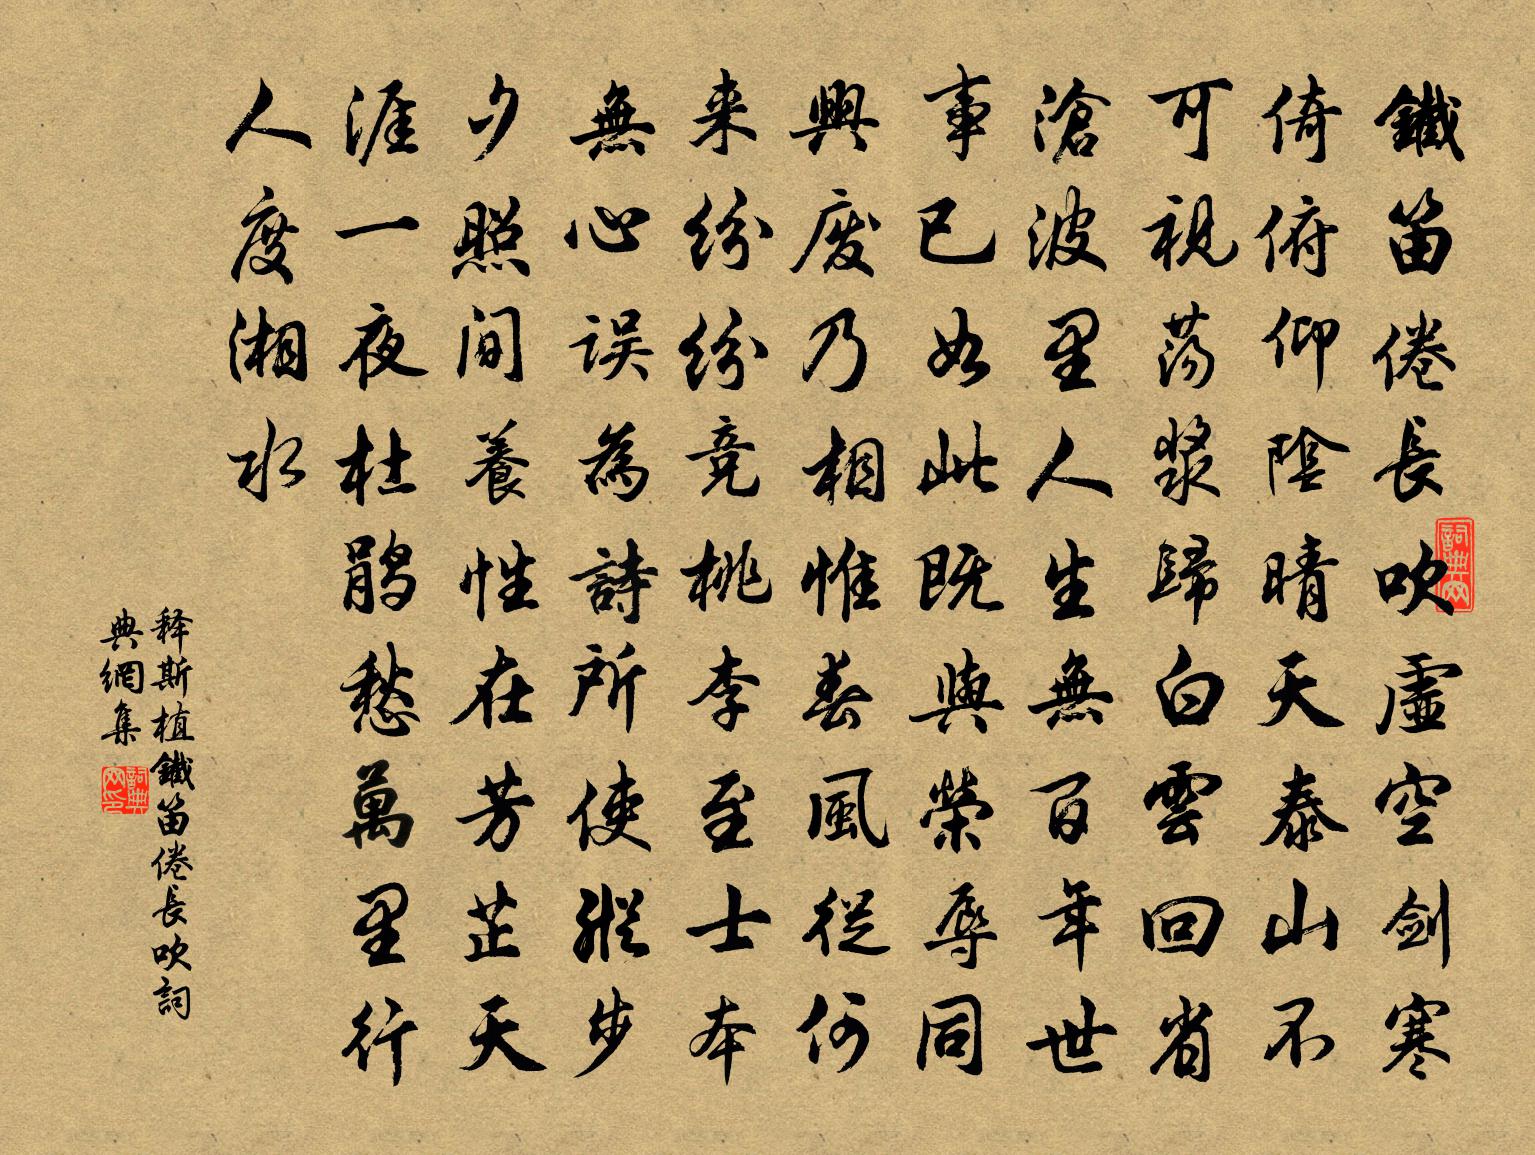 鐵笛倦長吹虛空劍寒
倚俯仰陰晴天泰山不
可視蕩漿歸白雲回省
滄波里人生無百年世
事已如此既與榮辱同
興废乃相惟春風從何
来紛紛竞桃李至士本
無心误為詩所使縱步
夕照间養性在芳芷天
涯一夜杜鹃愁萬里行
人度湘水
释斯植鐵笛倦長吹詞
典網集
詞典网
詞典网印